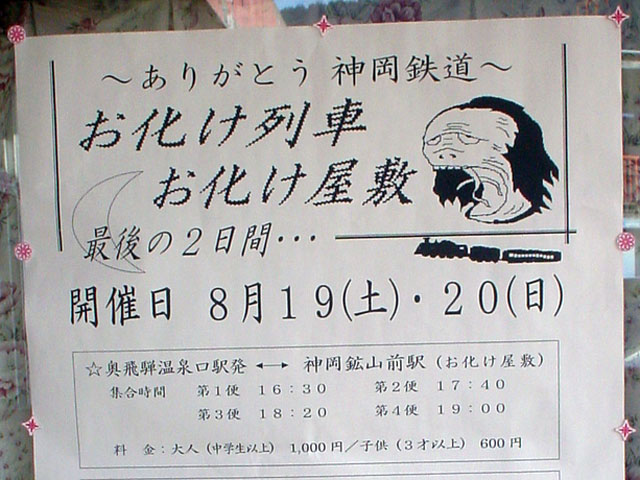 ～ありがとう 神岡鉄道～
お化け列車
お化け屋敷
最後の2日間・・・
開催日 8月19(土)・20(日)
☆奥飛騨温泉口駅発 ←→ 神岡鉱山前駅 (お化け屋敷)
集合時間 第1便 16：30 第2便 17：40
第3便 18：20 第4便 19：00
料 金：大人 (中学生以上) 1,000円／子供 (3才以上) 600円